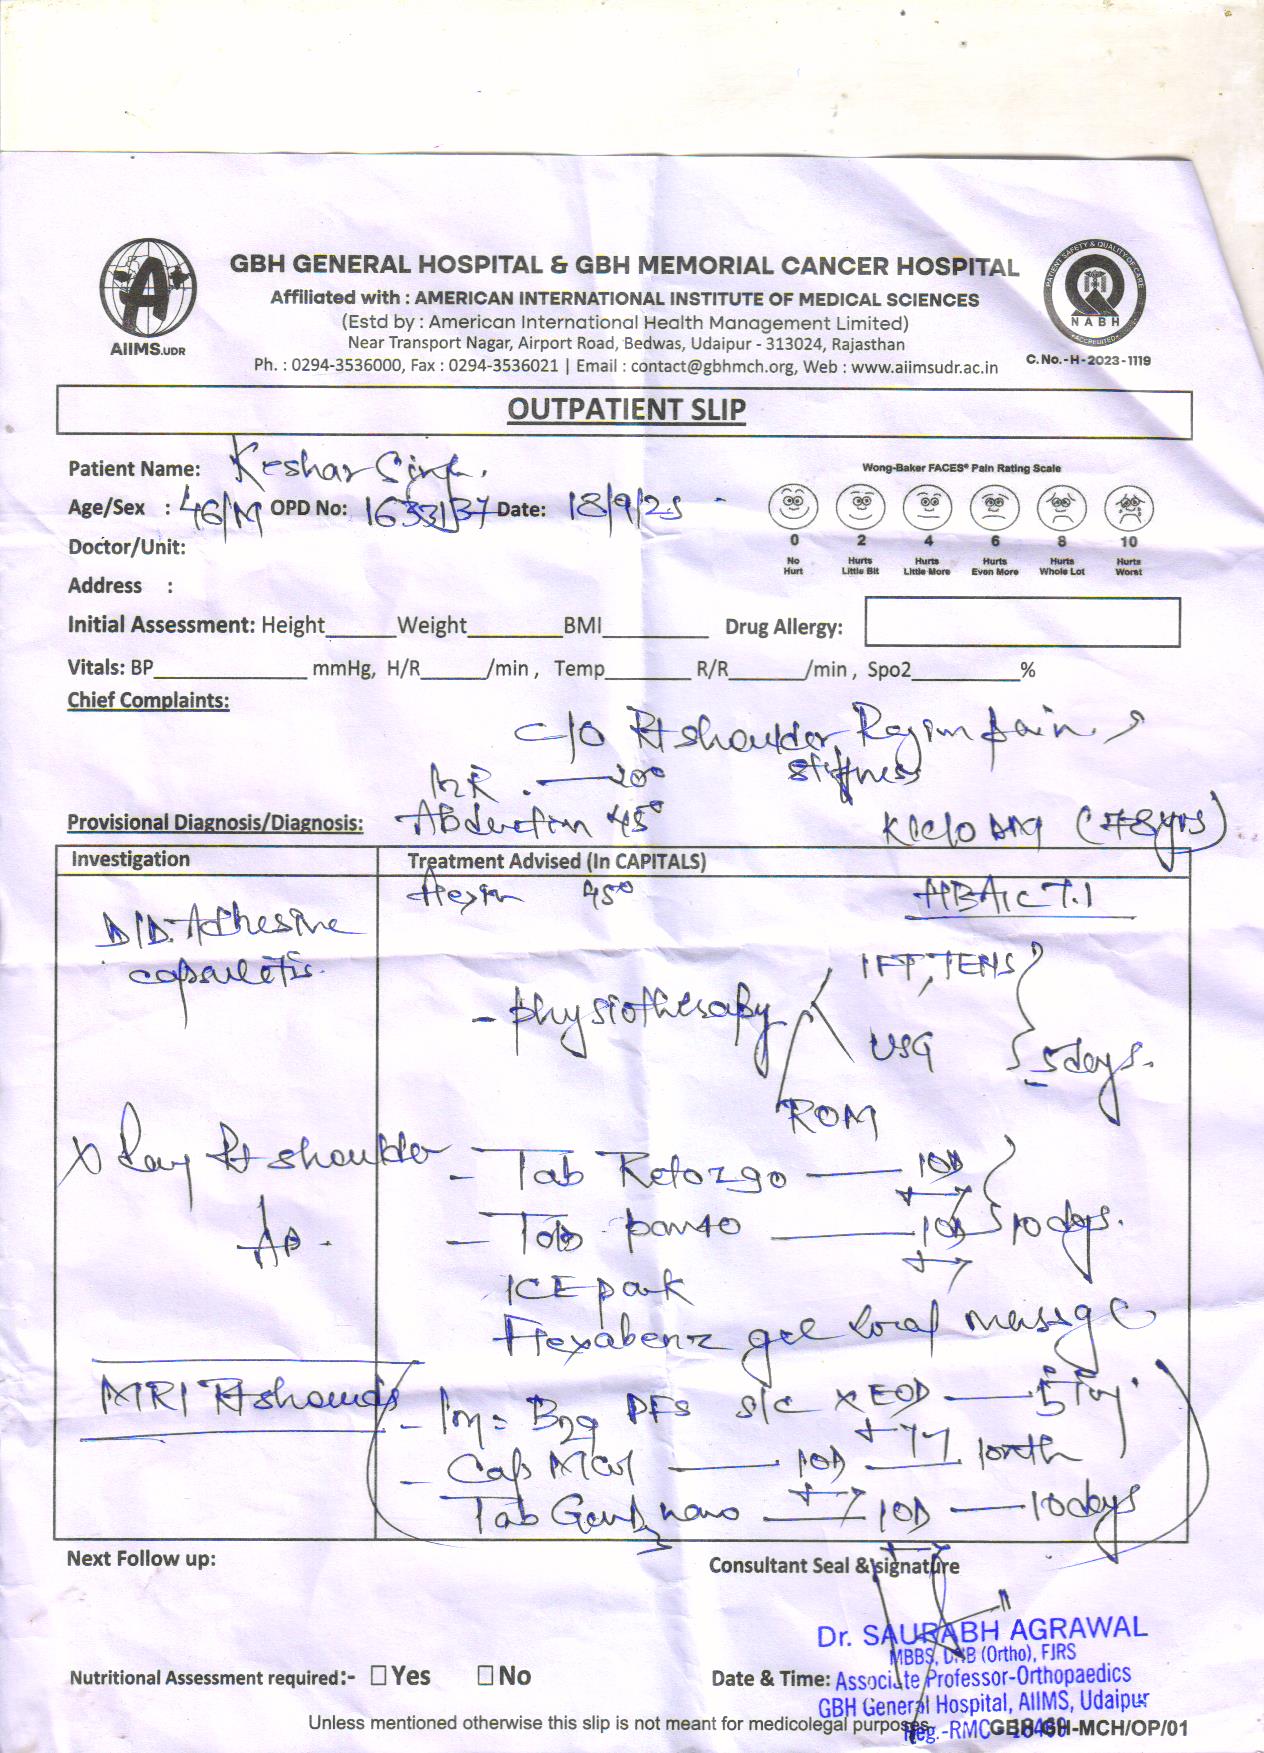 GBH GENERAL HOSPITAL & GBH MEMORIAL CANCER HOSPITAL
Affiliated with : AMERICAN INTERNATIONAL INSTITUTE OF MEDICAL SCIENCES
(Estd by : American International Health Management Limited)
Near Transport Nagar, Airport Road, Bedwas, Udaipur - 313024, Rajasthan
Ph. : 0294-3536000, Fax : 0294-3536021 | Email : contact@gbhmch.org, Web : www.aiimsudr.ac.in
A
AIIMS.UDR
PATIENT SAFETY & QUALITY OF CARE
NABH
ACCREDITED
C.No.-H-2023-1119
OUTPATIENT SLIP
Patient Name: Keshar Singh
Age/Sex : 46/M OPD No: Date: 18/9/25
Doctor/Unit:
Address :
Wong-Baker FACES® Pain Rating Scale
0 2 4 6 8 10
No Hurt Hurts Little Bit Hurts Little More Hurts Even More Hurts Whole Lot Hurts Worst
Initial Assessment: Height______Weight________BMI_________ Drug Allergy:
Vitals: BP_____________ mmHg, H/R______/min , Temp_______ R/R_______/min , Spo2_________%
Chief Complaints:
C/O Rt shoulder Region pain,
stiffness
20°
Provisional Diagnosis/Diagnosis: Abduction 45°
K/c/o DM
Investigation Treatment Advised (In CAPITALS)
45° HBA1C 7.1
Adhesive
capsulitis
- physiotherapy IFT, TENS
USG
ROM
5 days.
X Ray Rt shoulder
AP.
- Tab Retozgo 1OD
- Tab pan 40 1OD 10 days.
ICE pack
Flexabenz gel local massage
MRI Rt shoulder
PFS S/C x EOD
- Cap 1OD 1 month
Tab nano 1OD 10 days
Next Follow up:
Consultant Seal & signature
Dr. SAURABH AGRAWAL
MBBS, DNB (Ortho), FJRS
Nutritional Assessment required:- Yes No
Date & Time: Associate Professor-Orthopaedics
GBH General Hospital, AIIMS, Udaipur
Unless mentioned otherwise this slip is not meant for medicolegal purposes.
Reg.-RMC
GBH-GH-MCH/OP/01